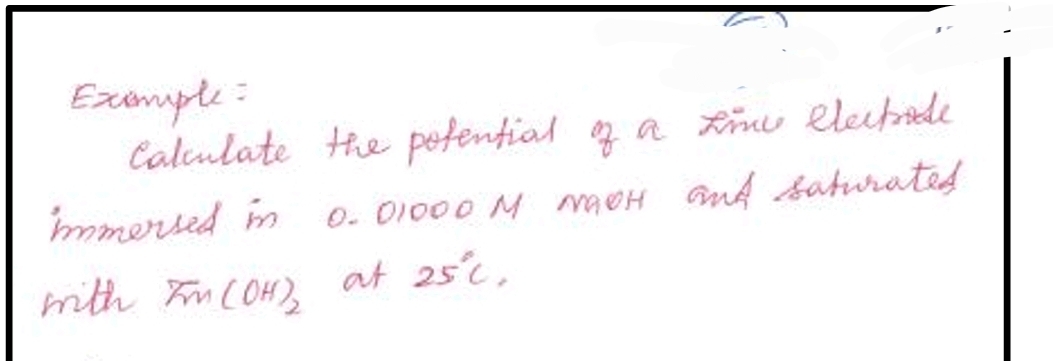 Example:
Calculate the potential of a zinc electrode
immersed in 0.01000 M NaOH and saturated
with Zn(OH)₂ at 25°C.